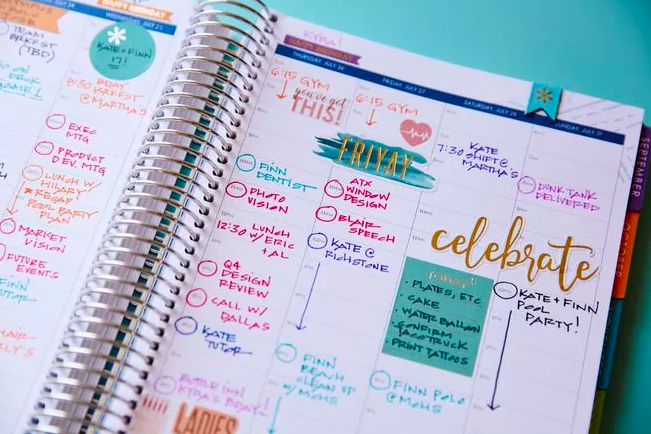 HAPPY BIRTHDAY
WEDNESDAY, JULY 25
TEAM
BRKFST
(TBD)
KATE + FINN
17!
8:30 BDAY
BRKFST
@ MARTHA'S
EXEC
MTG
PRODUCT
DEV. MTG
LUNCH W/
HILARY
POOL PARTY
PLAN
MARKET
VISION
FUTURE
EVENTS
TUTOR
KYRA!
HAPPY BIRTHDAY
THURSDAY, JULY 26
6:15 GYM
you've got
THIS!
FINN
DENTIST
PHOTO
VISION
LUNCH
12:30 W/ ERIC
+ AL
Q4
DESIGN
REVIEW
CALL W/
DALLAS
KATE
TUTOR
KYRA'S BDAY!
LADIES
FRIDAY, JULY 27
6:15 GYM
FRIYAY
ATX
WINDOW
DESIGN
BLAIR
SPEECH
KATE @
RICHSTONE
FINN
BEACH
CLEAN UP
W/ MOHS
SATURDAY, JULY 28
KATE
7:30 SHIFT @
MARTHA'S
celebrate
· PLATES, ETC
· CAKE
· WATER BALLOON
· CONFIRM
TACO TRUCK
· PRINT TATTOOS
FINN POLO
@ MOHS
SUNDAY, JULY
DUNK TANK
DELIVERED
KATE + FINN
POOL
PARTY!
SEPTEMBER
OCTOBER